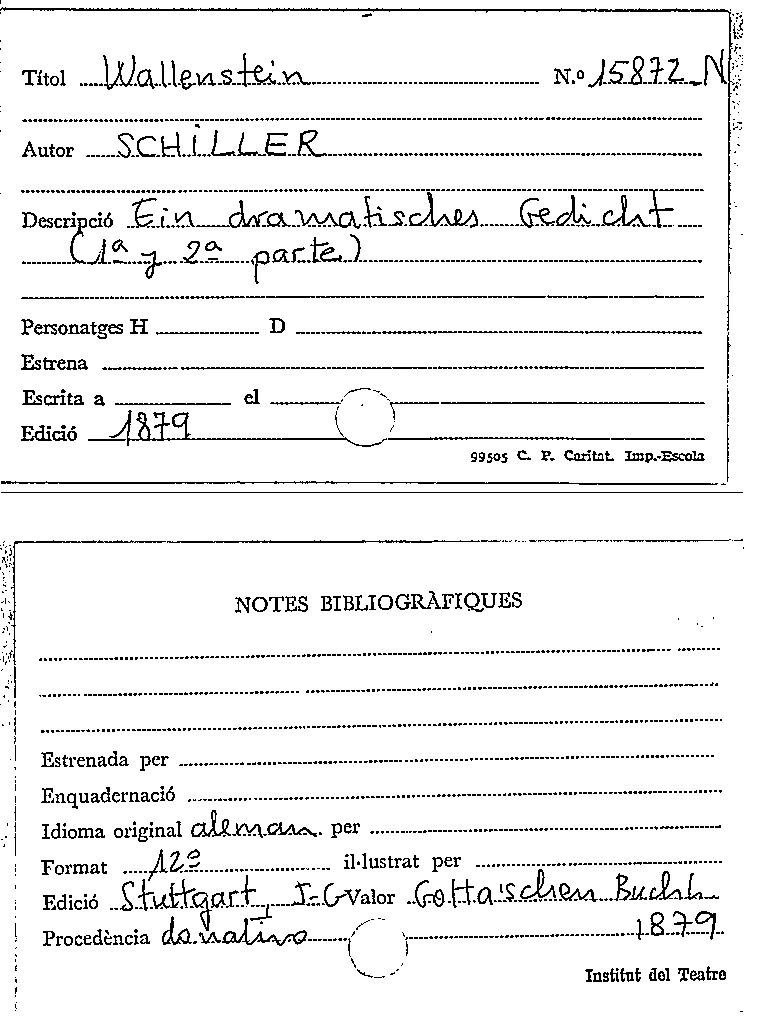 Títol Wallenstein N.º 15872-N
Autor SCHILLER
Descripció Ein dramatisches Gedicht
(1ª y 2ª parte)
Personatges H D
Estrena
Escrita a el
Edició 1879
99505 C. P. Caritat. Imp.-Escola
NOTES BIBLIOGRÀFIQUES
Estrenada per
Enquadernació
Idioma original aleman. per
Format 12º il·lustrat per
Edició Stuttgart, J-G Valor Gotta'schen Buchh
Procedència donativo 1879
Institut del Teatre